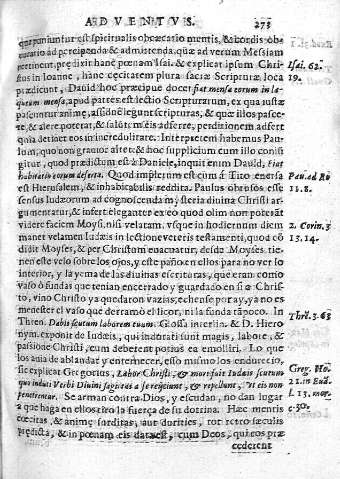 ADVENTVS. 275
que poniuntur est spiritualis obcæcatio mentis, & cordis obdu
ratio ad percipienda & admittenda, quæ ad verum Messiam
pertinent. prædixit hanc pœnam Isai. & explicat ipsum Chris-
tus in Ioanne, hanc cęcitatem plura sacræ Scripturæ loca
prædicunt, Dauid hoc præcipue docet, fiat mensa eorum in la-
queum mensa, apud patres est lectio Scripturarum, ex qua iustæ
pascuntur animę, assidue legunt scripturas, & quæ illos pasce-
re, & alere poterat, & saluti meis adferre, perditionem adfert
quia detinet eos in incredulitate. Interpretem habemus Pau-
lum, quo non grauior alter & hoc supplicium cum illo coniũ
gitur, quod prædictum est à Daniele, inquit enim Dauid, Fiat
habitatio eorum deserta. Quod impletum est cum à Tito euersa
est Hierusalem, & inhabitabilis reddita. Paulus obtusos esse
sensus Iudæorum ad cognoscendam, steria diuina Christi ar-
gumentatur, & infert eleganter ex eo quod olim non poterãt
videre faciem Moysi, nisi velatam. vsque in hodiernum diem
manet velamen Iudæis in lectione veteris testamenti, quod cõ
didit Moyses, & per Christum euacuatur, desda Moyses tie-
nen este velo sobre los ojos, y este paño en ellos para no ver lo
interior, y la yema de las diuinas escrituras, que eran como
vaso ò fundas que tenian encerrado y guardado en si a Chris-
to, vino Christo ya quedaron vazias; echense por ay, ya no es
menester el vaso que derramò el licor, ni la funda tãpoco. In
Thren. Dabis scutum laborem tuum. Glossa interlin. & D. Hiero
nym. exponit de Iudæis, qui indurati sunt magis, labore, &
passione Christi, cum deberent potius ea emolliri. Lo que
los auia de ablandar y enternecer, esso mismo los endurecio,
sic explicat Gregorius, Labor Christi, & mors fuit Iudæis scutum
quo induti Verbi Diuini sagittas à se reijciunt, & repellunt, vt eis non
penetrentur. Se arman contra Dios, y escudan, no dan lugar
a que haga en ellos tiro la fuerça de su dotrina. Hæc mentis
cœcitas, & animę sorditas, aut durities, tot retro sæculis
prædicta, & in pœnam eis data est, cum Deos, qui eos præ
cederent
Isai. 62.
19.
Pau. ad Ro
11.8.
2. Corin. 3
13.14.
Thrē. 3.65
Greg. Ho.
22. in Euã.
l. 13. mor.
c. 30.